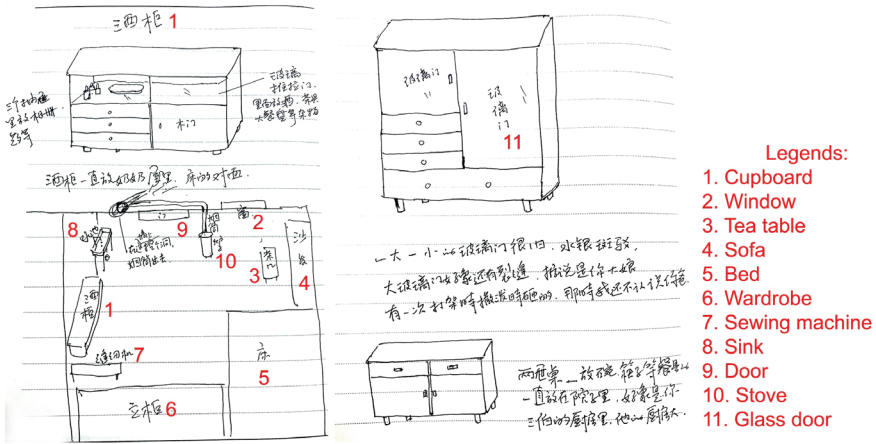 酒柜 1
玻璃
推拉门
里面放酒、茶具
大整瓷等杂物
三个抽屉
里放相册
药等
木门
酒柜一直放奶奶屋里，床的对面
8
水池
门
9
窗
2
烟筒
炉
10
茶几
3
沙发
4
酒柜
1
缝纫机 7
床
5
立柜 6
玻璃门
玻璃门
11
一大一小的玻璃门很旧，水银斑驳，
大玻璃门好像还有裂缝，据说是你大娘
有一次打架时撒泼时砸的，那时我还不认识你爸
两屉桌 放碗、筷子等餐具
一直放在院子里，好象是你
三伯的厨房里，他的厨房大
Legends:
1. Cupboard
2. Window
3. Tea table
4. Sofa
5. Bed
6. Wardrobe
7. Sewing machine
8. Sink
9. Door
10. Stove
11. Glass door